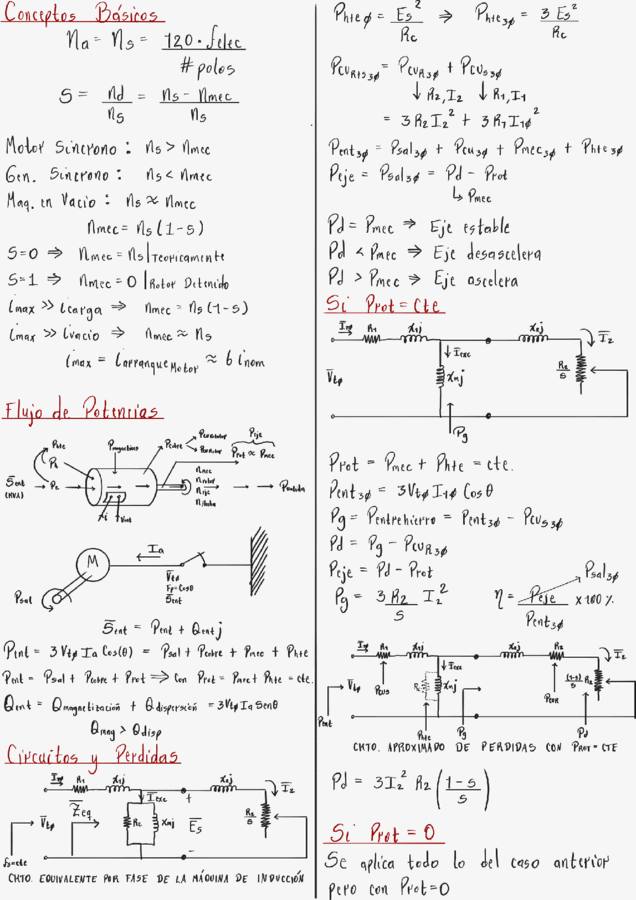 Conceptos Básicos
na = ns = 120 · felec / # polos
S = nd / ns = ns - nmec / ns
Motor Sincrono : ns > nmec
Gen. Sincrono : ns < nmec
Maq. en Vacio : ns ≈ nmec
nmec = ns (1 - s)
S=0 ⇒ nmec = ns | Teoricamente
S=1 ⇒ nmec = 0 | Rotor Detenido
imax >> icarga ⇒ nmec = ns (1-s)
imax >> ivacio ⇒ nmec ≈ ns
imax = iarranque Motor ≈ 6 inom
Flujo de Potencias
Phte
Pe
Pmagnetica
Pcobre
Peje
Prot ≈ Pmec
Sent
(KVA)
Pe
nmec
nrotor
neje
Psalida
Vent
M
Ia
Vtø
Fp=Cosθ
Sent
Psal
Sent = Pent + Qent j
Pent = 3 Vtø Ia Cos(θ) = Psal + Pcobre + Pmec + Phte
Pent = Psal + Pcobre + Prot ⇒ Con Prot = Pmec + Phte = cte.
Qent = Qmagnetización + Qdispersión = 3Vtø Ia Senθ
Qmag > Qdisp
Circuitos y Perdidas
I1ø R1 X1j X2j I2
Iexc
Vtø Zeq Rc Xmj + Es - R2/s
f=cte
CKTO. EQUIVALENTE POR FASE DE LA MÁQUINA DE INDUCCIÓN
Phte ø = Es² / Rc ⇒ Phte 3ø = 3 Es² / Rc
PCU R+S 3ø = PCU R 3ø + PCU S 3ø
↓ R2, I2 ↓ R1, I1
= 3 R2 I2² + 3 R1 I1ø²
Pent 3ø = Psal 3ø + Pcu 3ø + Pmec 3ø + Phte 3ø
Peje = Psal 3ø = Pd - Prot
↳ Pmec
Pd = Pmec ⇒ Eje estable
Pd < Pmec ⇒ Eje desascelera
Pd > Pmec ⇒ Eje ascelera
Si Prot = Cte
I1ø R1 X1j X2j I2
Iexc
Vtø Xmj R2/s
Pg
Prot = Pmec + Phte = cte.
Pent 3ø = 3Vtø I1ø Cosθ
Pg = Pentrehierro = Pent 3ø - Pcus 3ø
Pd = Pg - PCUR 3ø
Peje = Pd - Prot
Psal 3ø
Pg = 3 R2 / S I2²
η = Peje / Pent 3ø x 100 %
I1ø R1 X1j X2j R2 I2
Iexc
Vtø Rc Xmj (1-s)/s R2
Pcus PCUR
Pent Phte Pg Pd
CKTO. APROXIMADO DE PERDIDAS CON PROT = CTE
Pd = 3I2² R2 (1-s / s)
Si Prot = 0
Se aplica todo lo del caso anterior
pero con Prot=0